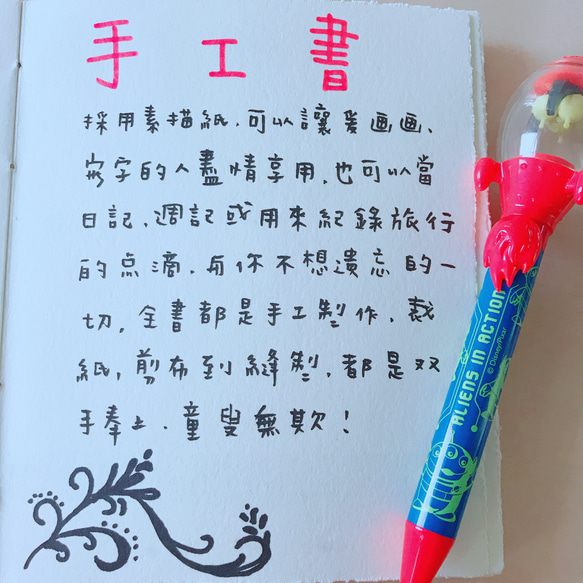 手工書
採用素描紙，可以讓爱画画、
寫字的人盡情享用，也可以當
日記，週記或用來紀錄旅行
的点滴，有你不想遺忘的一
切，全書都是手工製作，裁
紙，剪布到縫製，都是双
手奉上，童叟無欺！
ALIENS IN ACTION
© Disney/Pixar